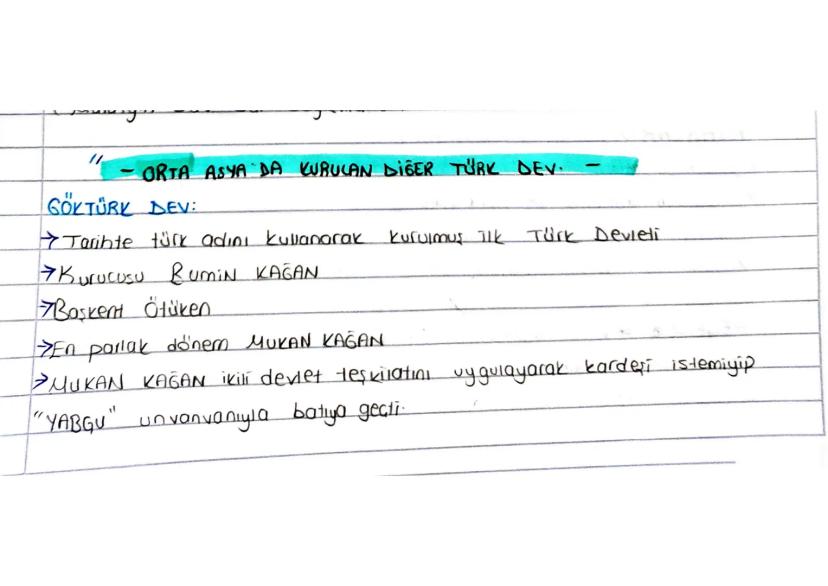 " - ORTA ASYA'DA KURULAN DİĞER TÜRK DEV. -
GÖKTÜRK DEV:
→ Tarihte türk adını kullanarak kurulmuş ilk Türk Devleti
→ Kurucusu Bumin KAĞAN
→ Başkent Ötüken
→ En parlak dönem MUKAN KAĞAN
→ MUKAN KAĞAN ikili devlet teşkilatını uygulayarak kardeşi istemiyip
"YABGU" unvanvanıyla batıya geçti.